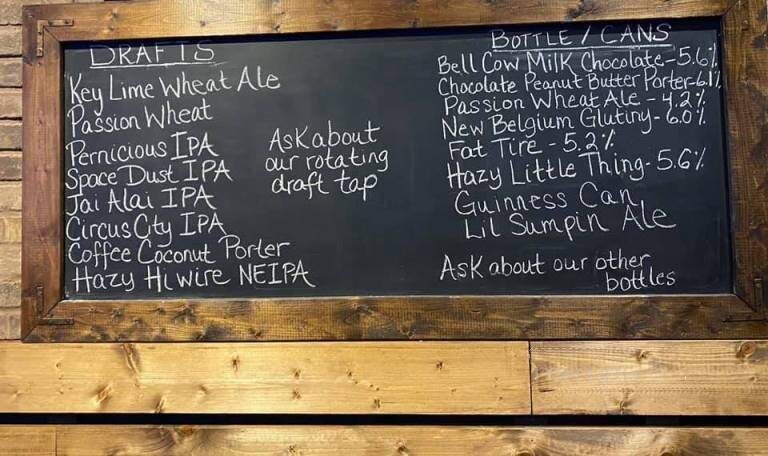 DRAFTS
Key Lime Wheat Ale
Passion Wheat
Pernicious IPA
Space Dust IPA
Jai Alai IPA
Circus City IPA
Coffee Coconut Porter
Hazy Hi wire NEIPA
Ask about
our rotating
draft tap
BOTTLE / CANS
Bell Cow Milk Chocolate-5.6%
Chocolate Peanut Butter Porter-6.1%
Passion Wheat Ale - 4.2%
New Belgium Glutiny- 6.0%
Fat Tire - 5.2%
Hazy Little Thing- 5.6%
Guinness Can
Lil Sumpin Ale
Ask about our other
bottles